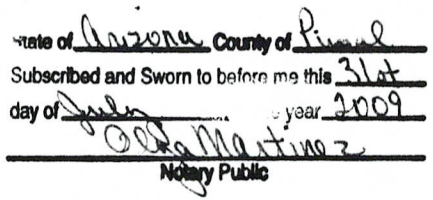 State of Arizona County of Pinal
Subscribed and Sworn to before me this 31st
day of July year 2009
Olga Martinez
Notary Public